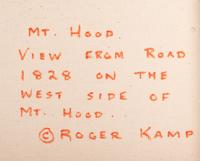 MT. HOOD.
VIEW FROM ROAD
1828 ON THE
WEST SIDE OF
MT. HOOD..
© ROGER KAMP